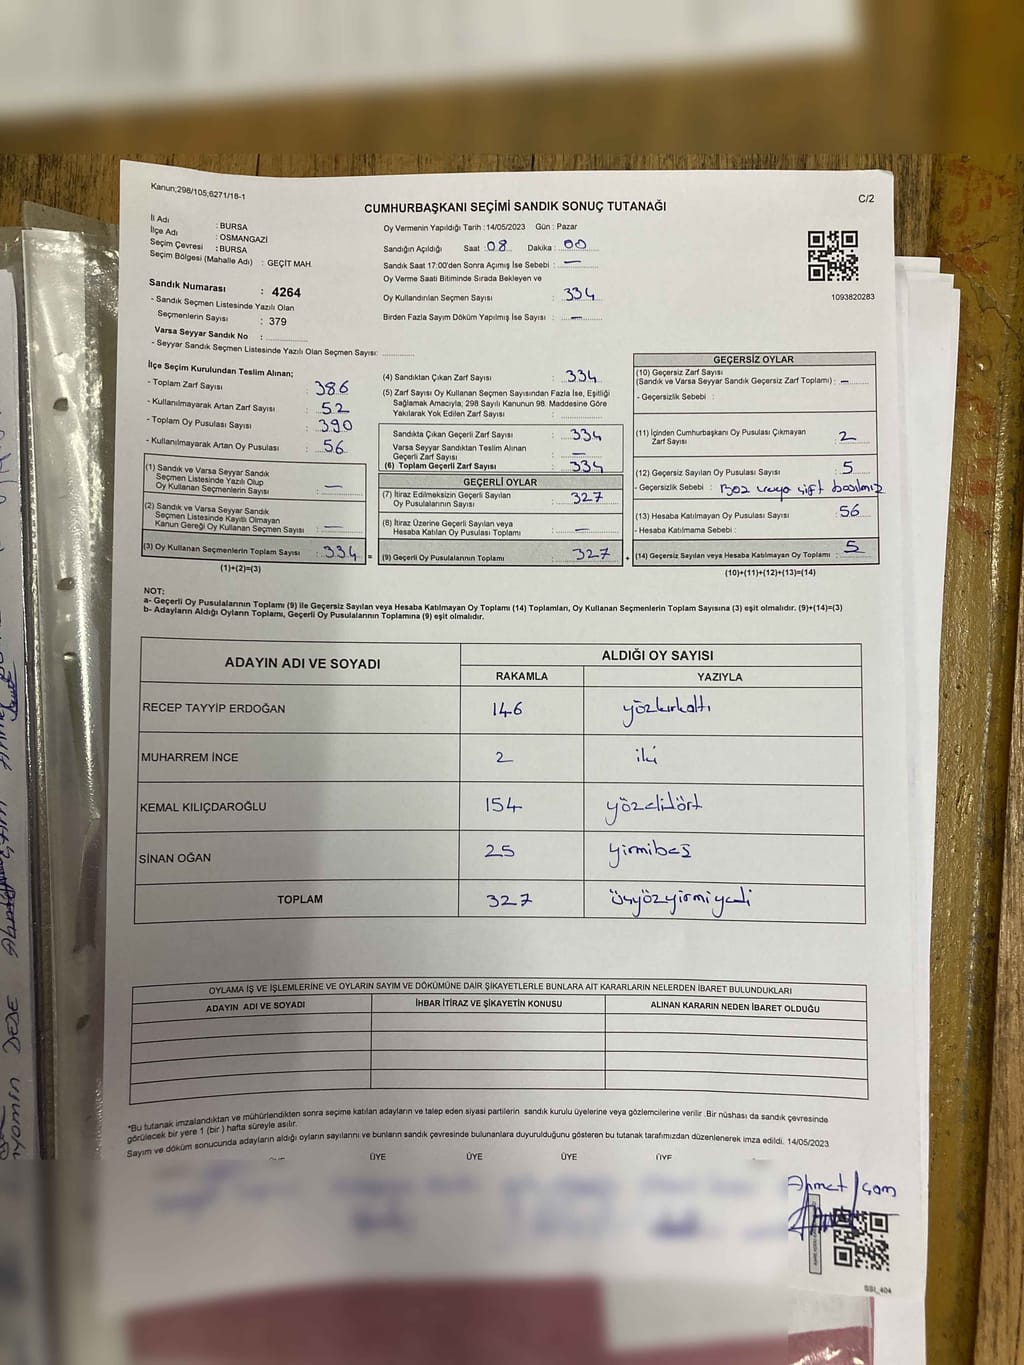 Kanun;298/105;6271/18-1
C/2
CUMHURBAŞKANI SEÇİMİ SANDIK SONUÇ TUTANAĞI
İl Adı : BURSA
İlçe Adı : OSMANGAZİ
Seçim Çevresi : BURSA
Seçim Bölgesi (Mahalle Adı) : GEÇİT MAH.
Oy Vermenin Yapıldığı Tarih : 14/05/2023 Gün : Pazar
Sandığın Açıldığı Saat : 08 Dakika : 00
Sandık Saat 17:00'den Sonra Açılmış İse Sebebi : —
Oy Verme Saati Bitiminde Sırada Bekleyen ve
Oy Kullandırılan Seçmen Sayısı : 334
Birden Fazla Sayım Döküm Yapılmış İse Sayısı : —
1093820283
Sandık Numarası : 4264
- Sandık Seçmen Listesinde Yazılı Olan
Seçmenlerin Sayısı : 379
Varsa Seyyar Sandık No :
- Seyyar Sandık Seçmen Listesinde Yazılı Olan Seçmen Sayısı:
İlçe Seçim Kurulundan Teslim Alınan;
- Toplam Zarf Sayısı : 386
- Kullanılmayarak Artan Zarf Sayısı : 52
- Toplam Oy Pusulası Sayısı : 390
- Kullanılmayarak Artan Oy Pusulası : 56
(1) Sandık ve Varsa Seyyar Sandık
Seçmen Listesinde Yazılı Olup
Oy Kullanan Seçmenlerin Sayısı : —
(2) Sandık ve Varsa Seyyar Sandık
Seçmen Listesinde Kayıtlı Olmayan
Kanun Gereği Oy Kullanan Seçmen Sayısı : —
(3) Oy Kullanan Seçmenlerin Toplam Sayısı : 334 =
(1)+(2)=(3)
(4) Sandıktan Çıkan Zarf Sayısı : 334
(5) Zarf Sayısı Oy Kullanan Seçmen Sayısından Fazla İse, Eşitliği
Sağlamak Amacıyla; 298 Sayılı Kanunun 98. Maddesine Göre
Yakılarak Yok Edilen Zarf Sayısı :
Sandıkta Çıkan Geçerli Zarf Sayısı : 334
Varsa Seyyar Sandıktan Teslim Alınan
Geçerli Zarf Sayısı : —
(6) Toplam Geçerli Zarf Sayısı : 334
GEÇERLİ OYLAR
(7) İtiraz Edilmeksizin Geçerli Sayılan
Oy Pusulalarının Sayısı : 327
(8) İtiraz Üzerine Geçerli Sayılan veya
Hesaba Katılan Oy Pusulası Toplamı : —
(9) Geçerli Oy Pusulalarının Toplamı : 327 +
GEÇERSİZ OYLAR
(10) Geçersiz Zarf Sayısı
(Sandık ve Varsa Seyyar Sandık Geçersiz Zarf Toplamı) : —
- Geçersizlik Sebebi :
(11) İçinden Cumhurbaşkanı Oy Pusulası Çıkmayan
Zarf Sayısı : 2
(12) Geçersiz Sayılan Oy Pusulası Sayısı : 5
- Geçersizlik Sebebi : Boz veya çift basılmış
(13) Hesaba Katılmayan Oy Pusulası Sayısı : 56
- Hesaba Katılmama Sebebi :
(14) Geçersiz Sayılan veya Hesaba Katılmayan Oy Toplamı : 5
(10)+(11)+(12)+(13)=(14)
NOT:
a- Geçerli Oy Pusulalarının Toplamı (9) ile Geçersiz Sayılan veya Hesaba Katılmayan Oy Toplamı (14) Toplamları, Oy Kullanan Seçmenlerin Toplam Sayısına (3) eşit olmalıdır. (9)+(14)=(3)
b- Adayların Aldığı Oyların Toplamı, Geçerli Oy Pusulalarının Toplamına (9) eşit olmalıdır.
ADAYIN ADI VE SOYADI
ALDIĞI OY SAYISI
RAKAMLA YAZIYLA
RECEP TAYYİP ERDOĞAN 146 yözkırkaltı
MUHARREM İNCE 2 iki
KEMAL KILIÇDAROĞLU 154 yözellidört
SİNAN OĞAN 25 yirmibeş
TOPLAM 327 üçyözyirmiyedi
OYLAMA İŞ VE İŞLEMLERİNE VE OYLARIN SAYIM VE DÖKÜMÜNE DAİR ŞİKAYETLERLE BUNLARA AİT KARARLARIN NELERDEN İBARET BULUNDUKLARI
ADAYIN ADI VE SOYADI İHBAR İTİRAZ VE ŞİKAYETİN KONUSU ALINAN KARARIN NEDEN İBARET OLDUĞU
*Bu tutanak imzalandıktan ve mühürlendikten sonra seçime katılan adayların ve talep eden siyasi partilerin sandık kurulu üyelerine veya gözlemcilerine verilir. Bir nüshası da sandık çevresinde
görülecek bir yere 1 (bir) hafta süreyle asılır.
Sayım ve döküm sonucunda adayların aldığı oyların sayılarını ve bunların sandık çevresinde bulunanlara duyurulduğunu gösteren bu tutanak tarafımızdan düzenlenerek imza edildi. 14/05/2023
ÜYE ÜYE ÜYE ÜYE ÜYE
Ahmet çam
SSI_404